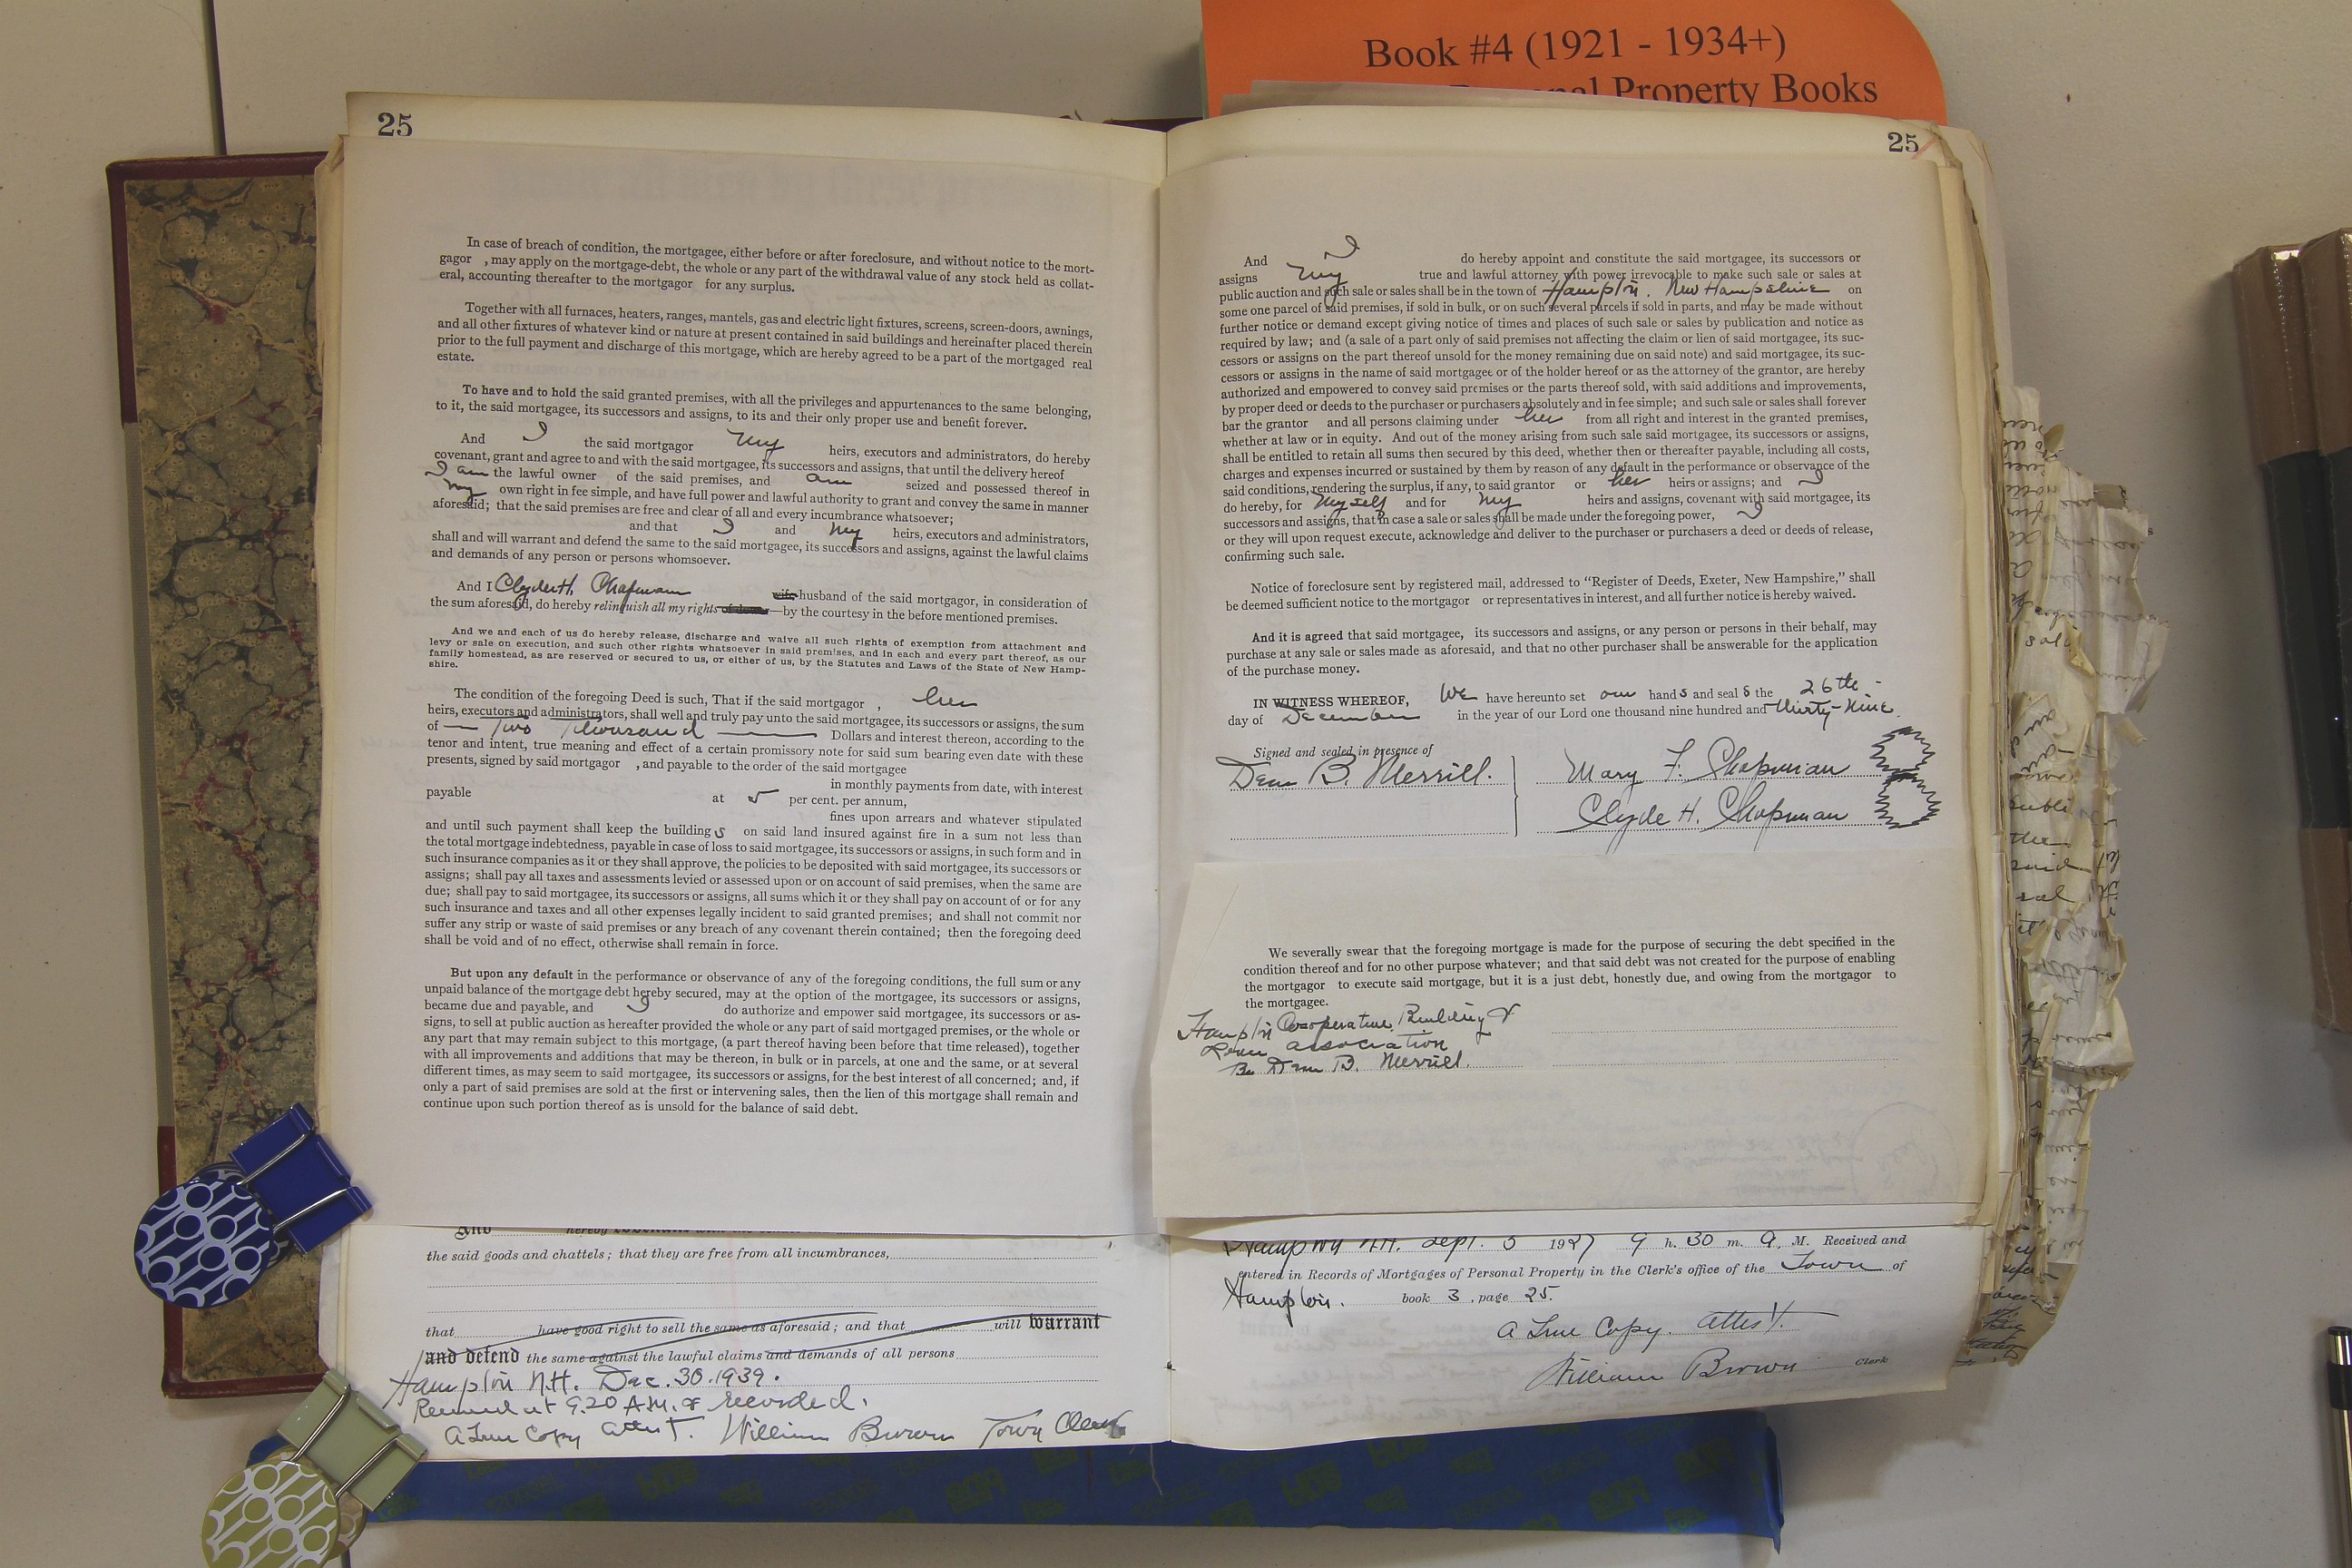 Book #4 (1921 - 1934+)
Personal Property Books
25
In case of breach of condition, the mortgagee, either before or after foreclosure, and without notice to the mort-
gagor , may apply on the mortgage-debt, the whole or any part of the withdrawal value of any stock held as collat-
eral, accounting thereafter to the mortgagor for any surplus.
Together with all furnaces, heaters, ranges, mantels, gas and electric light fixtures, screens, screen-doors, awnings,
and all other fixtures of whatever kind or nature at present contained in said buildings and hereinafter placed therein
prior to the full payment and discharge of this mortgage, which are hereby agreed to be a part of the mortgaged real
estate.
To have and to hold the said granted premises, with all the privileges and appurtenances to the same belonging,
to it, the said mortgagee, its successors and assigns, to its and their only proper use and benefit forever.
And I the said mortgagor my heirs, executors and administrators, do hereby
covenant, grant and agree to and with the said mortgagee, its successors and assigns, that until the delivery hereof
I am the lawful owner of the said premises, and am seized and possessed thereof in
my own right in fee simple, and have full power and lawful authority to grant and convey the same in manner
aforesaid; that the said premises are free and clear of all and every incumbrance whatsoever;
and that I and my heirs, executors and administrators,
shall and will warrant and defend the same to the said mortgagee, its successors and assigns, against the lawful claims
and demands of any person or persons whomsoever.
And I Clyde H. Chapman wife husband of the said mortgagor, in consideration of
the sum aforesaid, do hereby relinquish all my rights by the courtesy in the before mentioned premises.
And we and each of us do hereby release, discharge and waive all such rights of exemption from attachment and
levy or sale on execution, and such other rights whatsoever in said premises, and in each and every part thereof, as our
family homestead, as are reserved or secured to us, or either of us, by the Statutes and Laws of the State of New Hamp-
shire.
The condition of the foregoing Deed is such, That if the said mortgagor , her
heirs, executors and administrators, shall well and truly pay unto the said mortgagee, its successors or assigns, the sum
of — Two Thousand — Dollars and interest thereon, according to the
tenor and intent, true meaning and effect of a certain promissory note for said sum bearing even date with these
presents, signed by said mortgagor , and payable to the order of the said mortgagee
in monthly payments from date, with interest
payable at 5 per cent. per annum,
fines upon arrears and whatever stipulated
and until such payment shall keep the buildings on said land insured against fire in a sum not less than
the total mortgage indebtedness, payable in case of loss to said mortgagee, its successors or assigns, in such form and in
such insurance companies as it or they shall approve, the policies to be deposited with said mortgagee, its successors or
assigns; shall pay all taxes and assessments levied or assessed upon or on account of said premises, when the same are
due; shall pay to said mortgagee, its successors or assigns, all sums which it or they shall pay on account of or for any
such insurance and taxes and all other expenses legally incident to said granted premises; and shall not commit nor
suffer any strip or waste of said premises or any breach of any covenant therein contained; then the foregoing deed
shall be void and of no effect, otherwise shall remain in force.
But upon any default in the performance or observance of any of the foregoing conditions, the full sum or any
unpaid balance of the mortgage debt hereby secured, may at the option of the mortgagee, its successors or assigns,
became due and payable, and I do authorize and empower said mortgagee, its successors or as-
signs, to sell at public auction as hereafter provided the whole or any part of said mortgaged premises, or the whole or
any part that may remain subject to this mortgage, (a part thereof having been before that time released), together
with all improvements and additions that may be thereon, in bulk or in parcels, at one and the same, or at several
different times, as may seem to said mortgagee, its successors or assigns, for the best interest of all concerned; and, if
only a part of said premises are sold at the first or intervening sales, then the lien of this mortgage shall remain and
continue upon such portion thereof as is unsold for the balance of said debt.
the said goods and chattels; that they are free from all incumbrances,
that have good right to sell the same as aforesaid; and that will warrant
and defend the same against the lawful claims and demands of all persons
Hampton N.H. Dec. 30. 1939.
Received at 9.20 A.M. & recorded.
A True Copy attest. William Brown Town Clerk
25
And I do hereby appoint and constitute the said mortgagee, its successors or
assigns my true and lawful attorney with power irrevocable to make such sale or sales at
public auction and such sale or sales shall be in the town of Hampton, New Hampshire on
some one parcel of said premises, if sold in bulk, or on such several parcels if sold in parts, and may be made without
further notice or demand except giving notice of times and places of such sale or sales by publication and notice as
required by law; and (a sale of a part only of said premises not affecting the claim or lien of said mortgagee, its suc-
cessors or assigns on the part thereof unsold for the money remaining due on said note) and said mortgagee, its suc-
cessors or assigns in the name of said mortgagee or of the holder hereof or as the attorney of the grantor, are hereby
authorized and empowered to convey said premises or the parts thereof sold, with said additions and improvements,
by proper deed or deeds to the purchaser or purchasers absolutely and in fee simple; and such sale or sales shall forever
bar the grantor and all persons claiming under her from all right and interest in the granted premises,
whether at law or in equity. And out of the money arising from such sale said mortgagee, its successors or assigns,
shall be entitled to retain all sums then secured by this deed, whether then or thereafter payable, including all costs,
charges and expenses incurred or sustained by them by reason of any default in the performance or observance of the
said conditions, rendering the surplus, if any, to said grantor or her heirs or assigns; and I
do hereby, for myself and for my heirs and assigns, covenant with said mortgagee, its
successors and assigns, that in case a sale or sales shall be made under the foregoing power, I
or they will upon request execute, acknowledge and deliver to the purchaser or purchasers a deed or deeds of release,
confirming such sale.
Notice of foreclosure sent by registered mail, addressed to "Register of Deeds, Exeter, New Hampshire," shall
be deemed sufficient notice to the mortgagor or representatives in interest, and all further notice is hereby waived.
And it is agreed that said mortgagee, its successors and assigns, or any person or persons in their behalf, may
purchase at any sale or sales made as aforesaid, and that no other purchaser shall be answerable for the application
of the purchase money.
IN WITNESS WHEREOF, We have hereunto set our hands and seals the 26th
day of December in the year of our Lord one thousand nine hundred and thirty-nine.
Signed and sealed in presence of
Dean B. Merrill. Mary F. Chapman
Clyde H. Chapman
We severally swear that the foregoing mortgage is made for the purpose of securing the debt specified in the
condition thereof and for no other purpose whatever; and that said debt was not created for the purpose of enabling
the mortgagor to execute said mortgage, but it is a just debt, honestly due, and owing from the mortgagor to
the mortgagee.
Hampton Cooperative Building &
Loan association
By Dean B. Merrill.
Hampton N.H. Sept. 5 1927 9 h. 30 m. A. M. Received and
entered in Records of Mortgages of Personal Property in the Clerk's office of the Town of
Hampton. book 3, page 25.
A True Copy. Attest.
William Brown Clerk